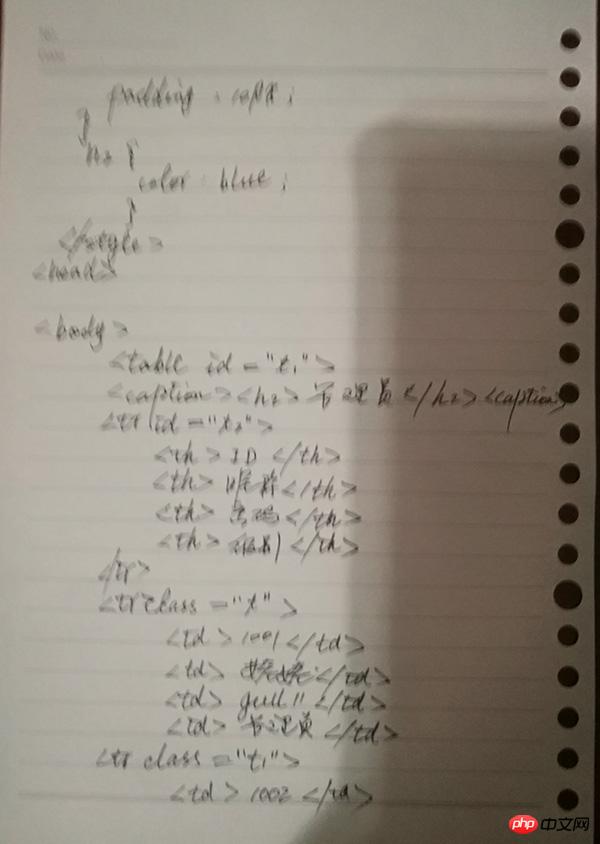 padding : 10px ;
}
h2 {
color : blue ;
}
</style>
<head>
<body>
<table id ="t1">
<caption><h2>管理员</h2><caption>
<tr id ="t2">
<th> ID </th>
<th> 昵称</th>
<th> 密码</th>
<th> 级别</th>
</tr>
<tr class ="t">
<td> 1001</td>
<td> </td>
<td> gull11</td>
<td> 管理员</td>
<tr class ="t1">
<td> 1002</td>
php 中文网